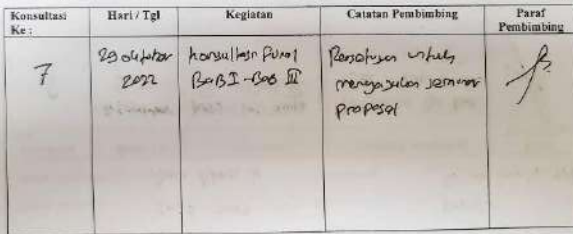 Konsultasi Ke :
Hari / Tgl
Kegiatan
Catatan Pembimbing
Paraf Pembimbing
7
29 oktober
2022
konsultasi Pusat
BAB I - BAB III
Persetujuan untuk
mengajukan seminar
proposal